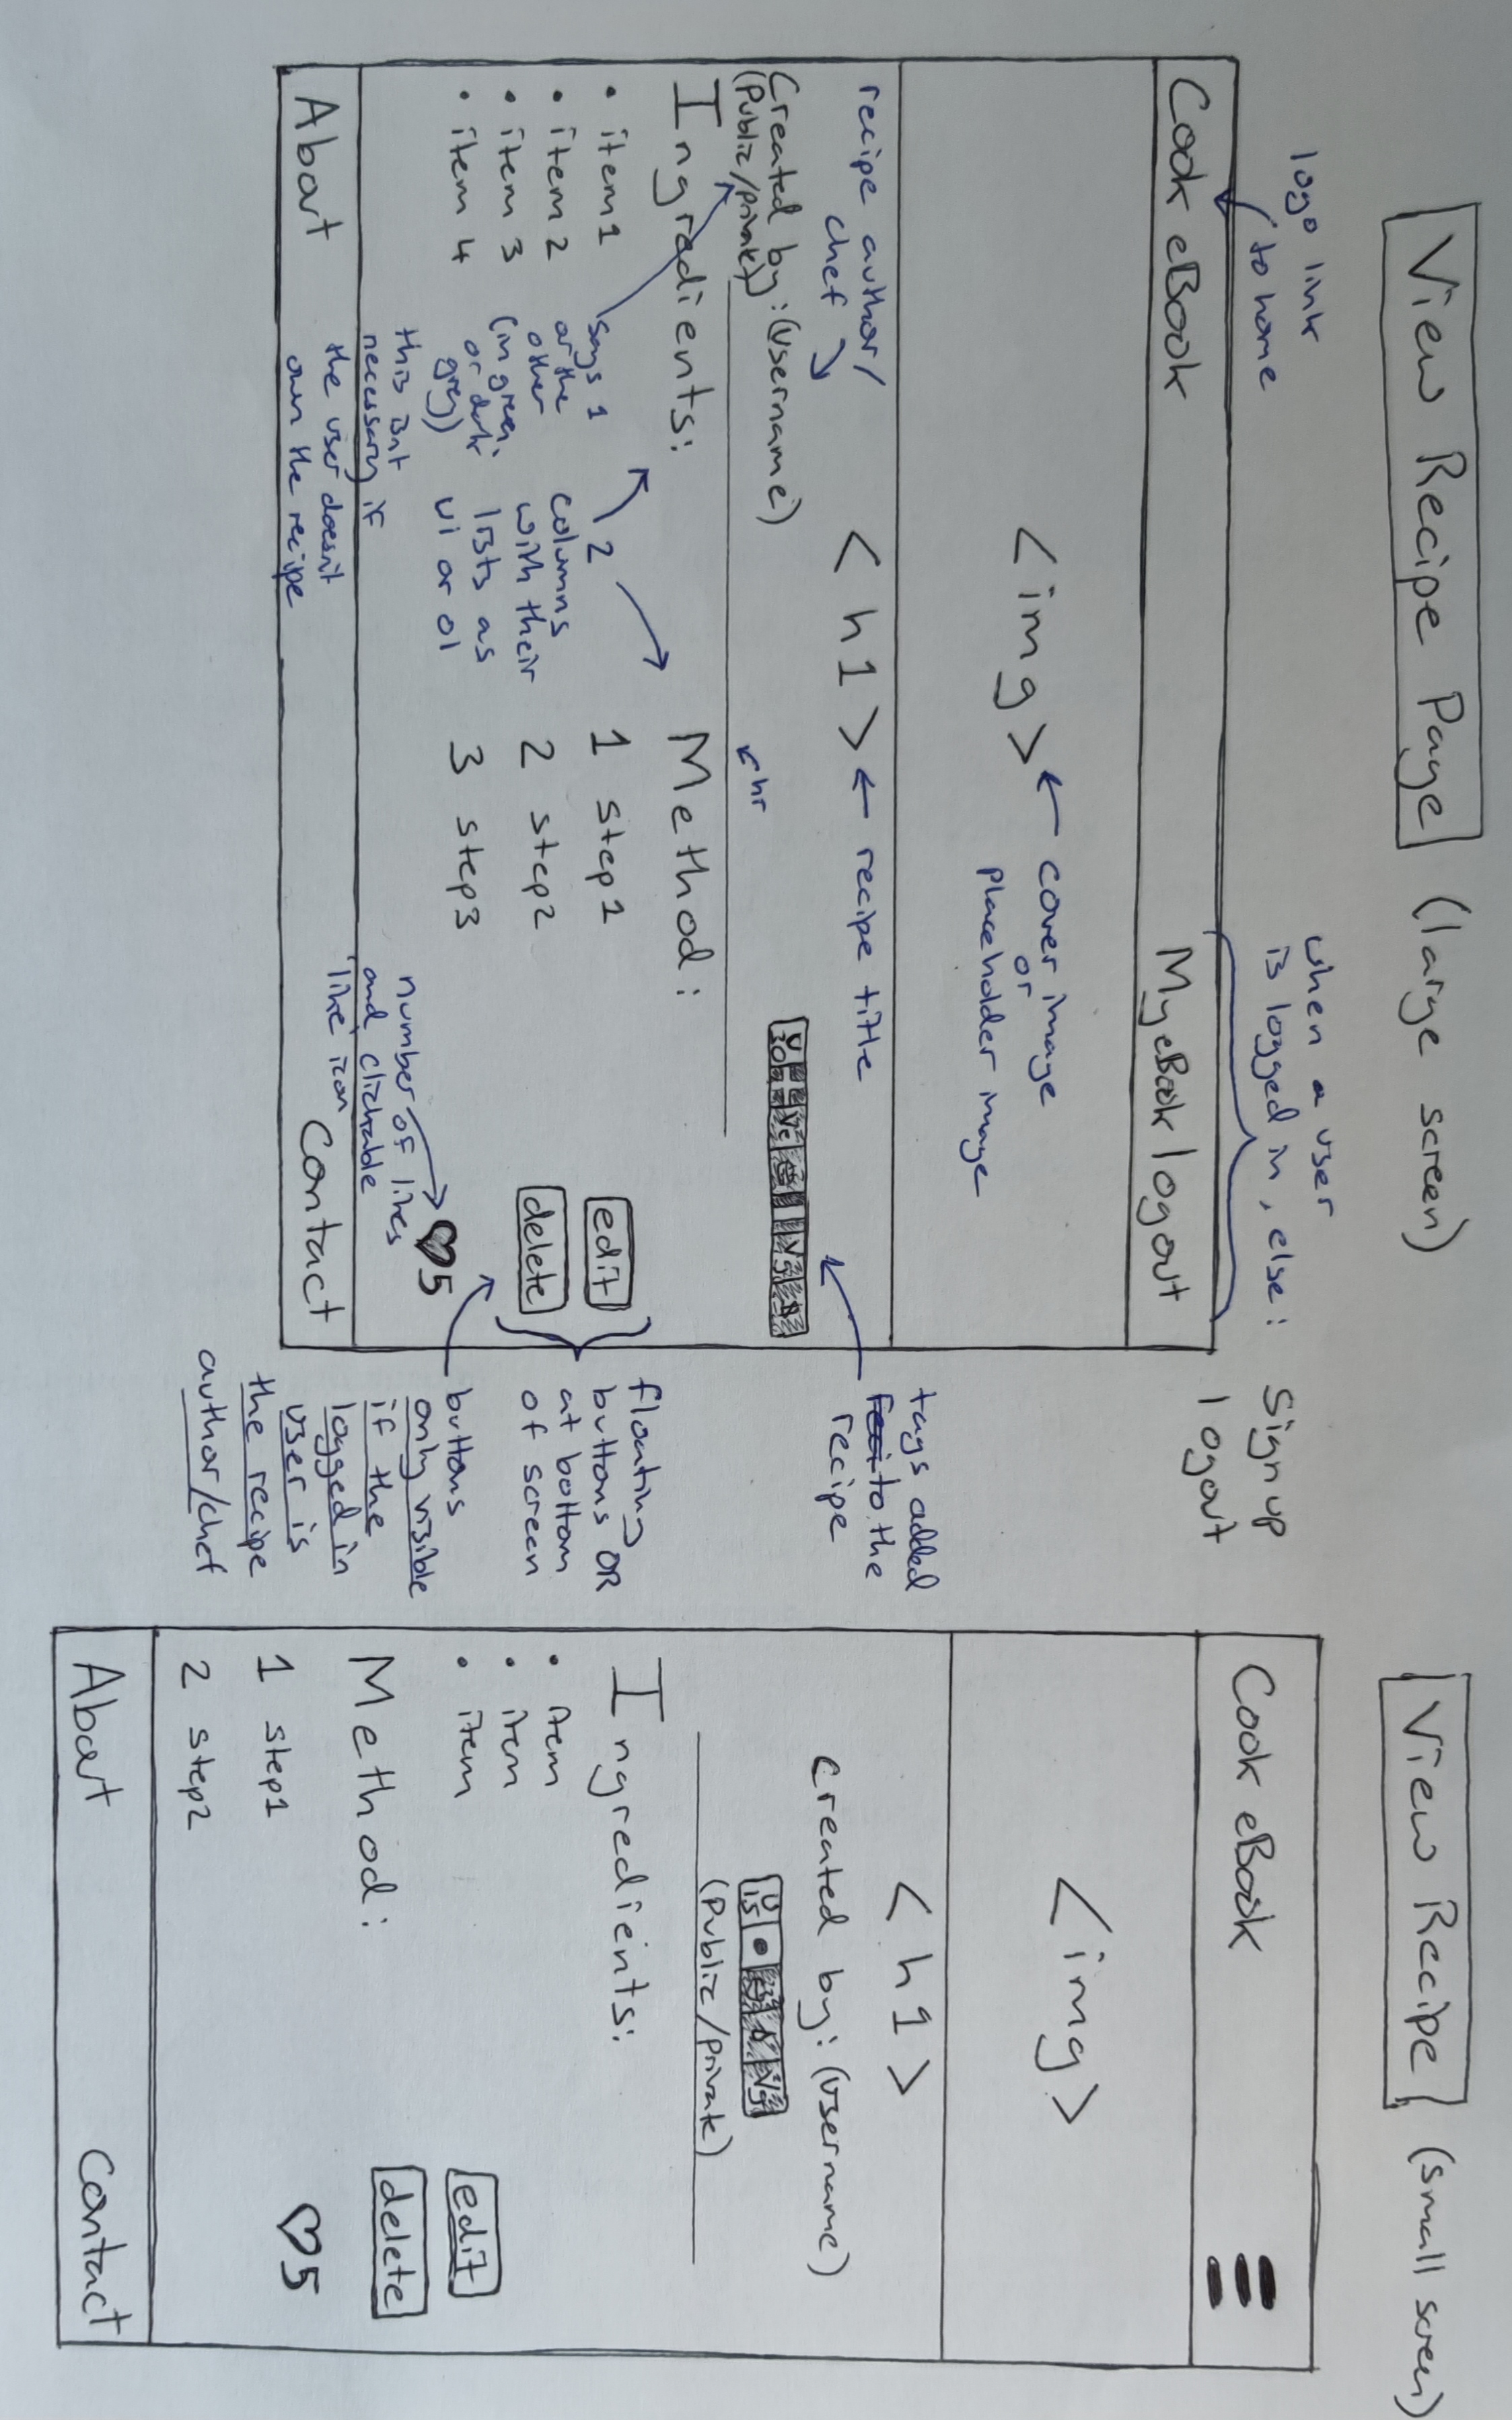 View Recipe Page (large screen)
logo link
to home
when a user
is logged in, else:
Sign up
logout
Cook eBook
My eBook logout
<img>
cover image
or
placeholder image
recipe author/
chef
<h1>
recipe title
tags added
to the
recipe
Created by: (username)
(Public/private)
hr
Ingredients:
• item1
• item 2
• item 3
• item 4
says 1
or the
other
(in green
or dark
grey)
this isnt
necessary if
the user doesn't
own the recipe
2
columns
with their
lists as
ul or ol
Method:
1 step1
2 step2
3 step3
edit
delete
floating
buttons OR
at bottom
of screen
5
number of likes
and clickable
'like' icon
buttons
only visible
if the
logged in
user is
the recipe
author/chef
About
Contact
View Recipe (small screen)
Cook eBook
<img>
<h1>
created by: (username)
(Public/private)
Ingredients:
• item
• item
• item
edit
delete
Method:
5
1 step1
2 step2
About
Contact